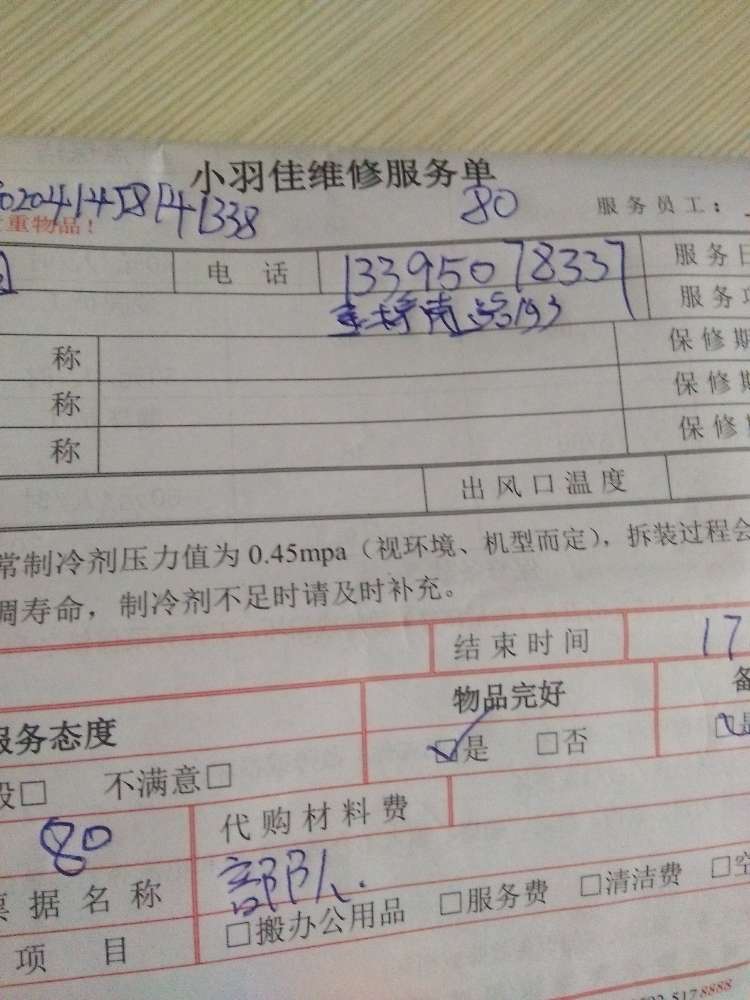 小羽佳维修服务单
020241458141338 80 服务员工：
重物品！
电话 13395078337 服务日
服务项
称 保修期
称 保修期
称 保修
出风口温度
常制冷剂压力值为0.45mpa（视环境、机型而定），拆装过程会
调寿命，制冷剂不足时请及时补充。
结束时间 17
物品完好 备
服务态度 ☑是 □否
般□ 不满意□
80 代购材料费
票据名称 部队.
项目 □搬办公用品 □服务费 □清洁费 □空
5178888